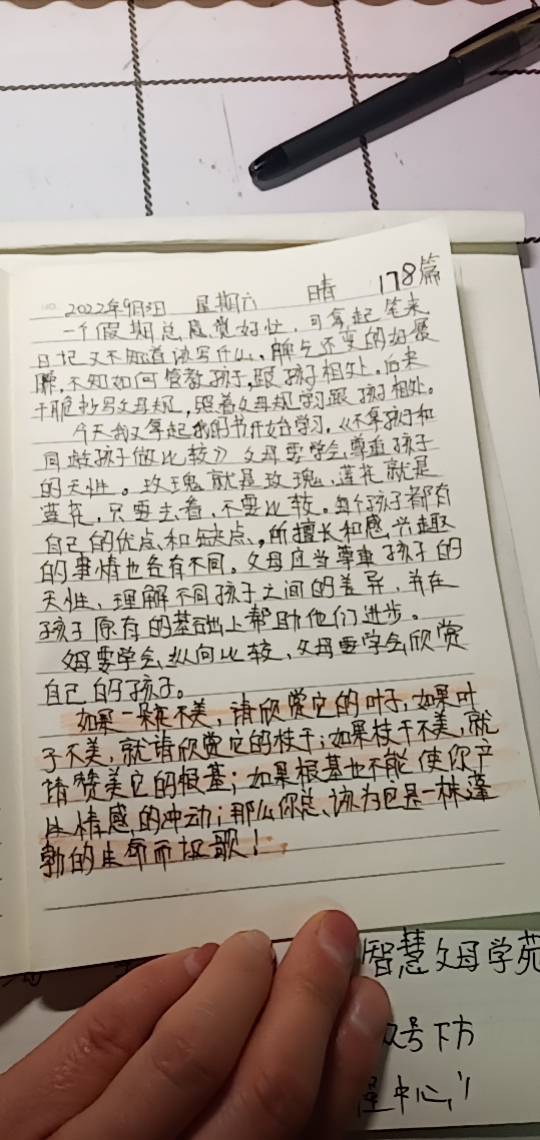 2022年9月3日 星期六 晴 178篇
一个假期总感觉好忙，可拿起笔来
日记又不知道该写什么，脾气还变的好暴
躁，不知如何管教孩子，跟孩子相处。后来
干脆抄写父母规，照着父母规学习跟孩子相处。
今天我又拿起我的书开始学习，《不拿孩子和
同龄孩子做比较》父母要学会尊重孩子
的天性。玫瑰就是玫瑰，莲花就是
莲花，只要去看，不要比较。每个孩子都有
自己的优点和缺点，所擅长和感兴趣
的事情也各有不同。父母应当尊重孩子的
天性、理解不同孩子之间的差异，并在
孩子原有的基础上帮助他们进步。
父母要学会纵向比较，父母要学会欣赏
自己的孩子。
如果一朵花不美，请欣赏它的叶子；如果叶
子不美，就请欣赏它的枝干；如果枝干不美，就
请赞美它的根基；如果根基也不能使你产
生情感的冲动；那么你总该为它是一株蓬
勃的生命而讴歌！
智慧父母学苑
下方
中心